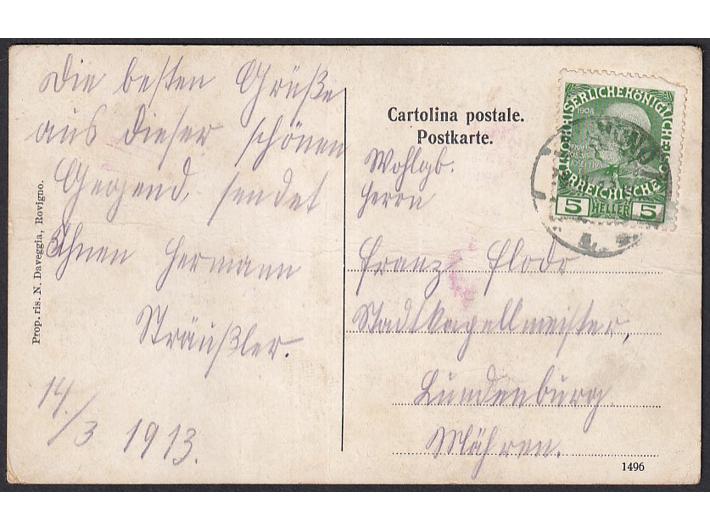 Die besten Grüße
aus dieser schönen
Gegend, sendet
Ihnen Hermann
Sträußler.
14./3 1913.
Prop. ris. N. Daveggia, Rovigno.
Cartolina postale.
Postkarte.
Wohlgb.
Herrn
Franz Flodr
Stadtkapellmeister,
Lundenburg
Mähren.
1496
KAISERLICHE KÖNIGLICHE
ÖSTERREICHISCHE
1908
5 HELLER 5